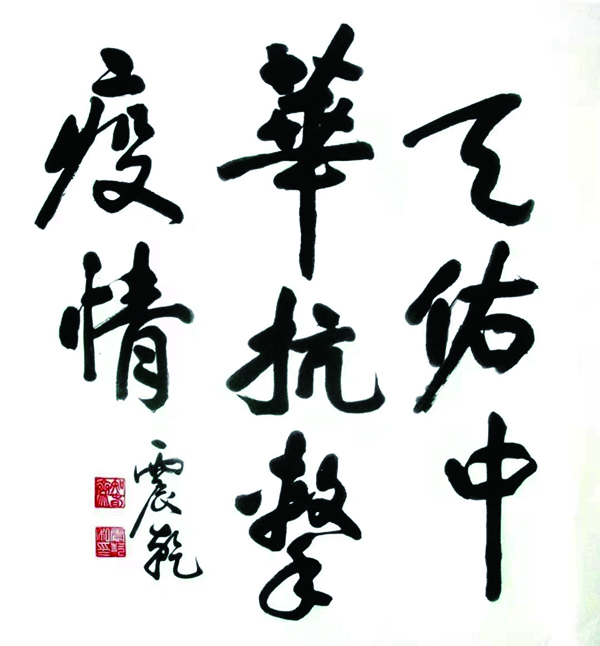 天佑中
華抗擊
疫情
震乾